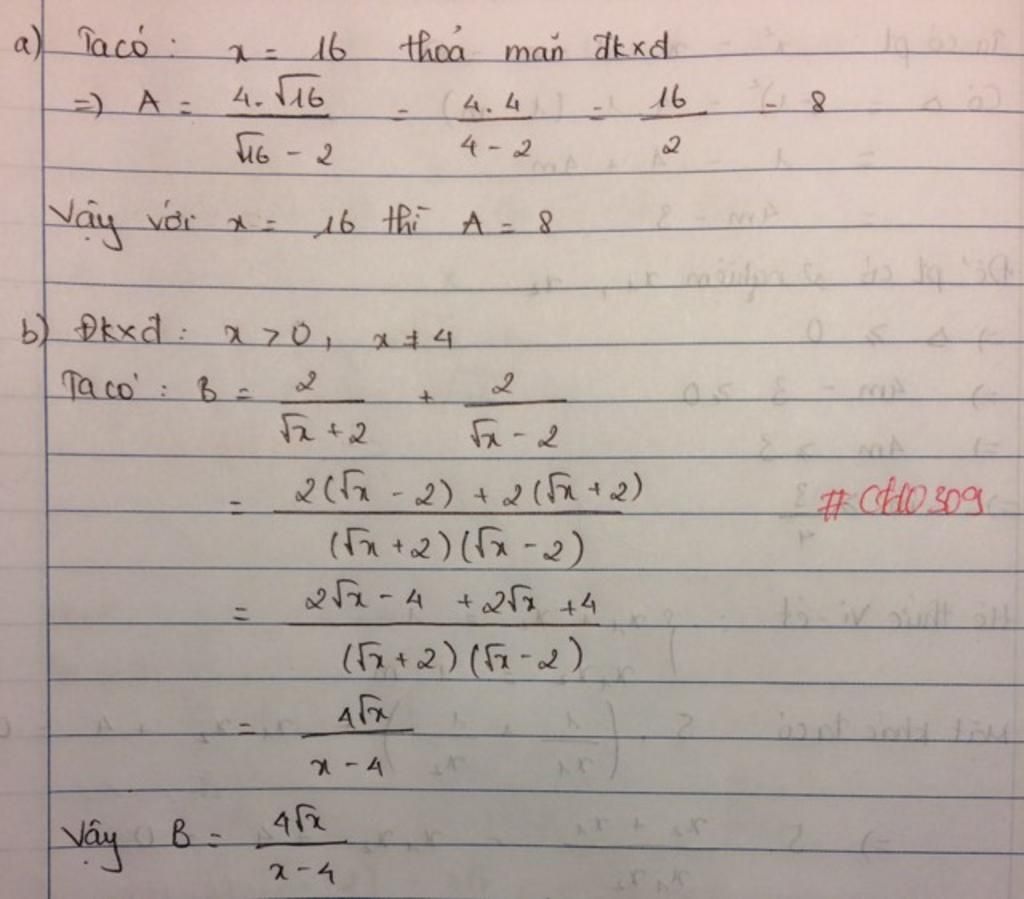 a) Ta có: x = 16 thoả mãn đkxđ
=) A = 4.√16 / √16 - 2 = 4.4 / 4 - 2 = 16 / 2 = 8
Vậy với x = 16 thì A = 8
b) Đkxđ: x > 0, x ≠ 4
Ta có: B = 2 / √x + 2 + 2 / √x - 2
= 2(√x - 2) + 2(√x + 2) / (√x + 2)(√x - 2)
#CH0309
= 2√x - 4 + 2√x + 4 / (√x + 2)(√x - 2)
= 4√x / x - 4
Vậy B = 4√x / x - 4